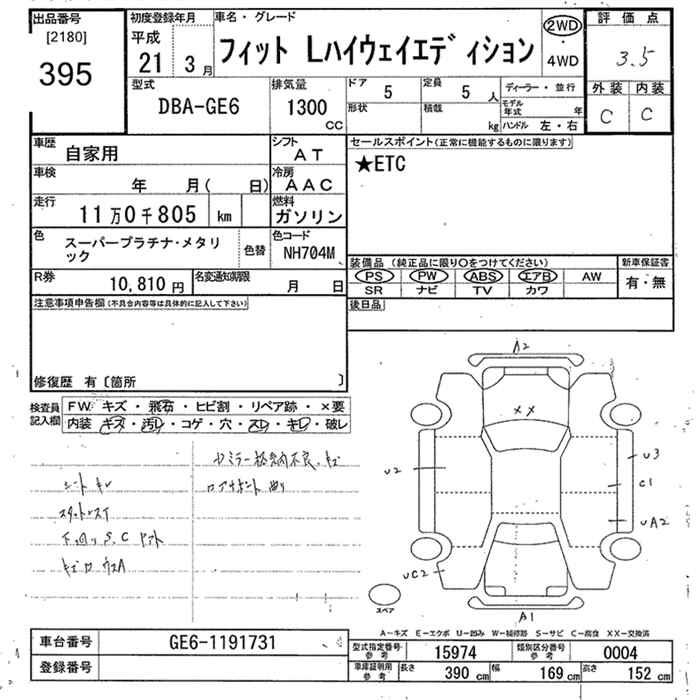 出品番号 初度登録年月 車名・グレード 評価点
[2180] 平成 フィット Lハイウェイエディション 2WD・4WD 3.5
395 21 3月
型式 排気量 ドア 定員 ディーラー・並行 外装 内装
DBA-GE6 1300 CC 5 5人 モデル年式 年 C C
形状 積載 kg ハンドル 左・右
車歴 自家用 シフト AT セールスポイント(正常に機能するものに限ります)
車検 年 月( 日) 冷房 AAC ★ETC
走行 11万0千805 km 燃料 ガソリン
色 スーパープラチナ・メタリック 色替 色コード NH704M
装備品 (純正品に限り○をつけてください) 新車保証書
PS PW ABS エアB AW 有・無
SR ナビ TV カワ
R券 10,810円 名変通知期限 月 日
注意事項申告欄(不具合内容等は具体的に記入して下さい) 後日品
修復歴 有〔箇所 〕
検査員記入欄 FW キズ・飛石・ヒビ割・リペア跡・×要
内装 キズ・汚レ・コゲ・穴・スレ・キレ・破レ
A2
XX
U2 U3
C1
UA2
UC2
スペア
A1
シートキレ
A-キズ E-エクボ U-凹み W-補修跡 S-サビ C-腐食 XX-交換済
車台番号 GE6-1191731 型式指定番号 参考 15974 類別区分番号 参考 0004
登録番号 車庫証明用 参考 長さ 390 cm 幅 169 cm 高さ 152 cm